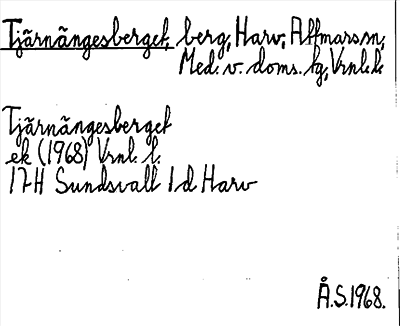 Tjärnängesberget, berg, Harv, Attmars sn,
Med. v. doms. tg, Vrnl. l.
Tjärnängesberget
ek (1968) Vrnl. l.
17H Sundsvall 1d Harv
Å.S.1968.